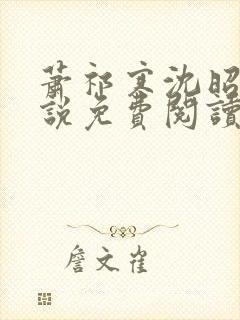 蕭祁寒沈昭
說免費閱讀
詹文雀